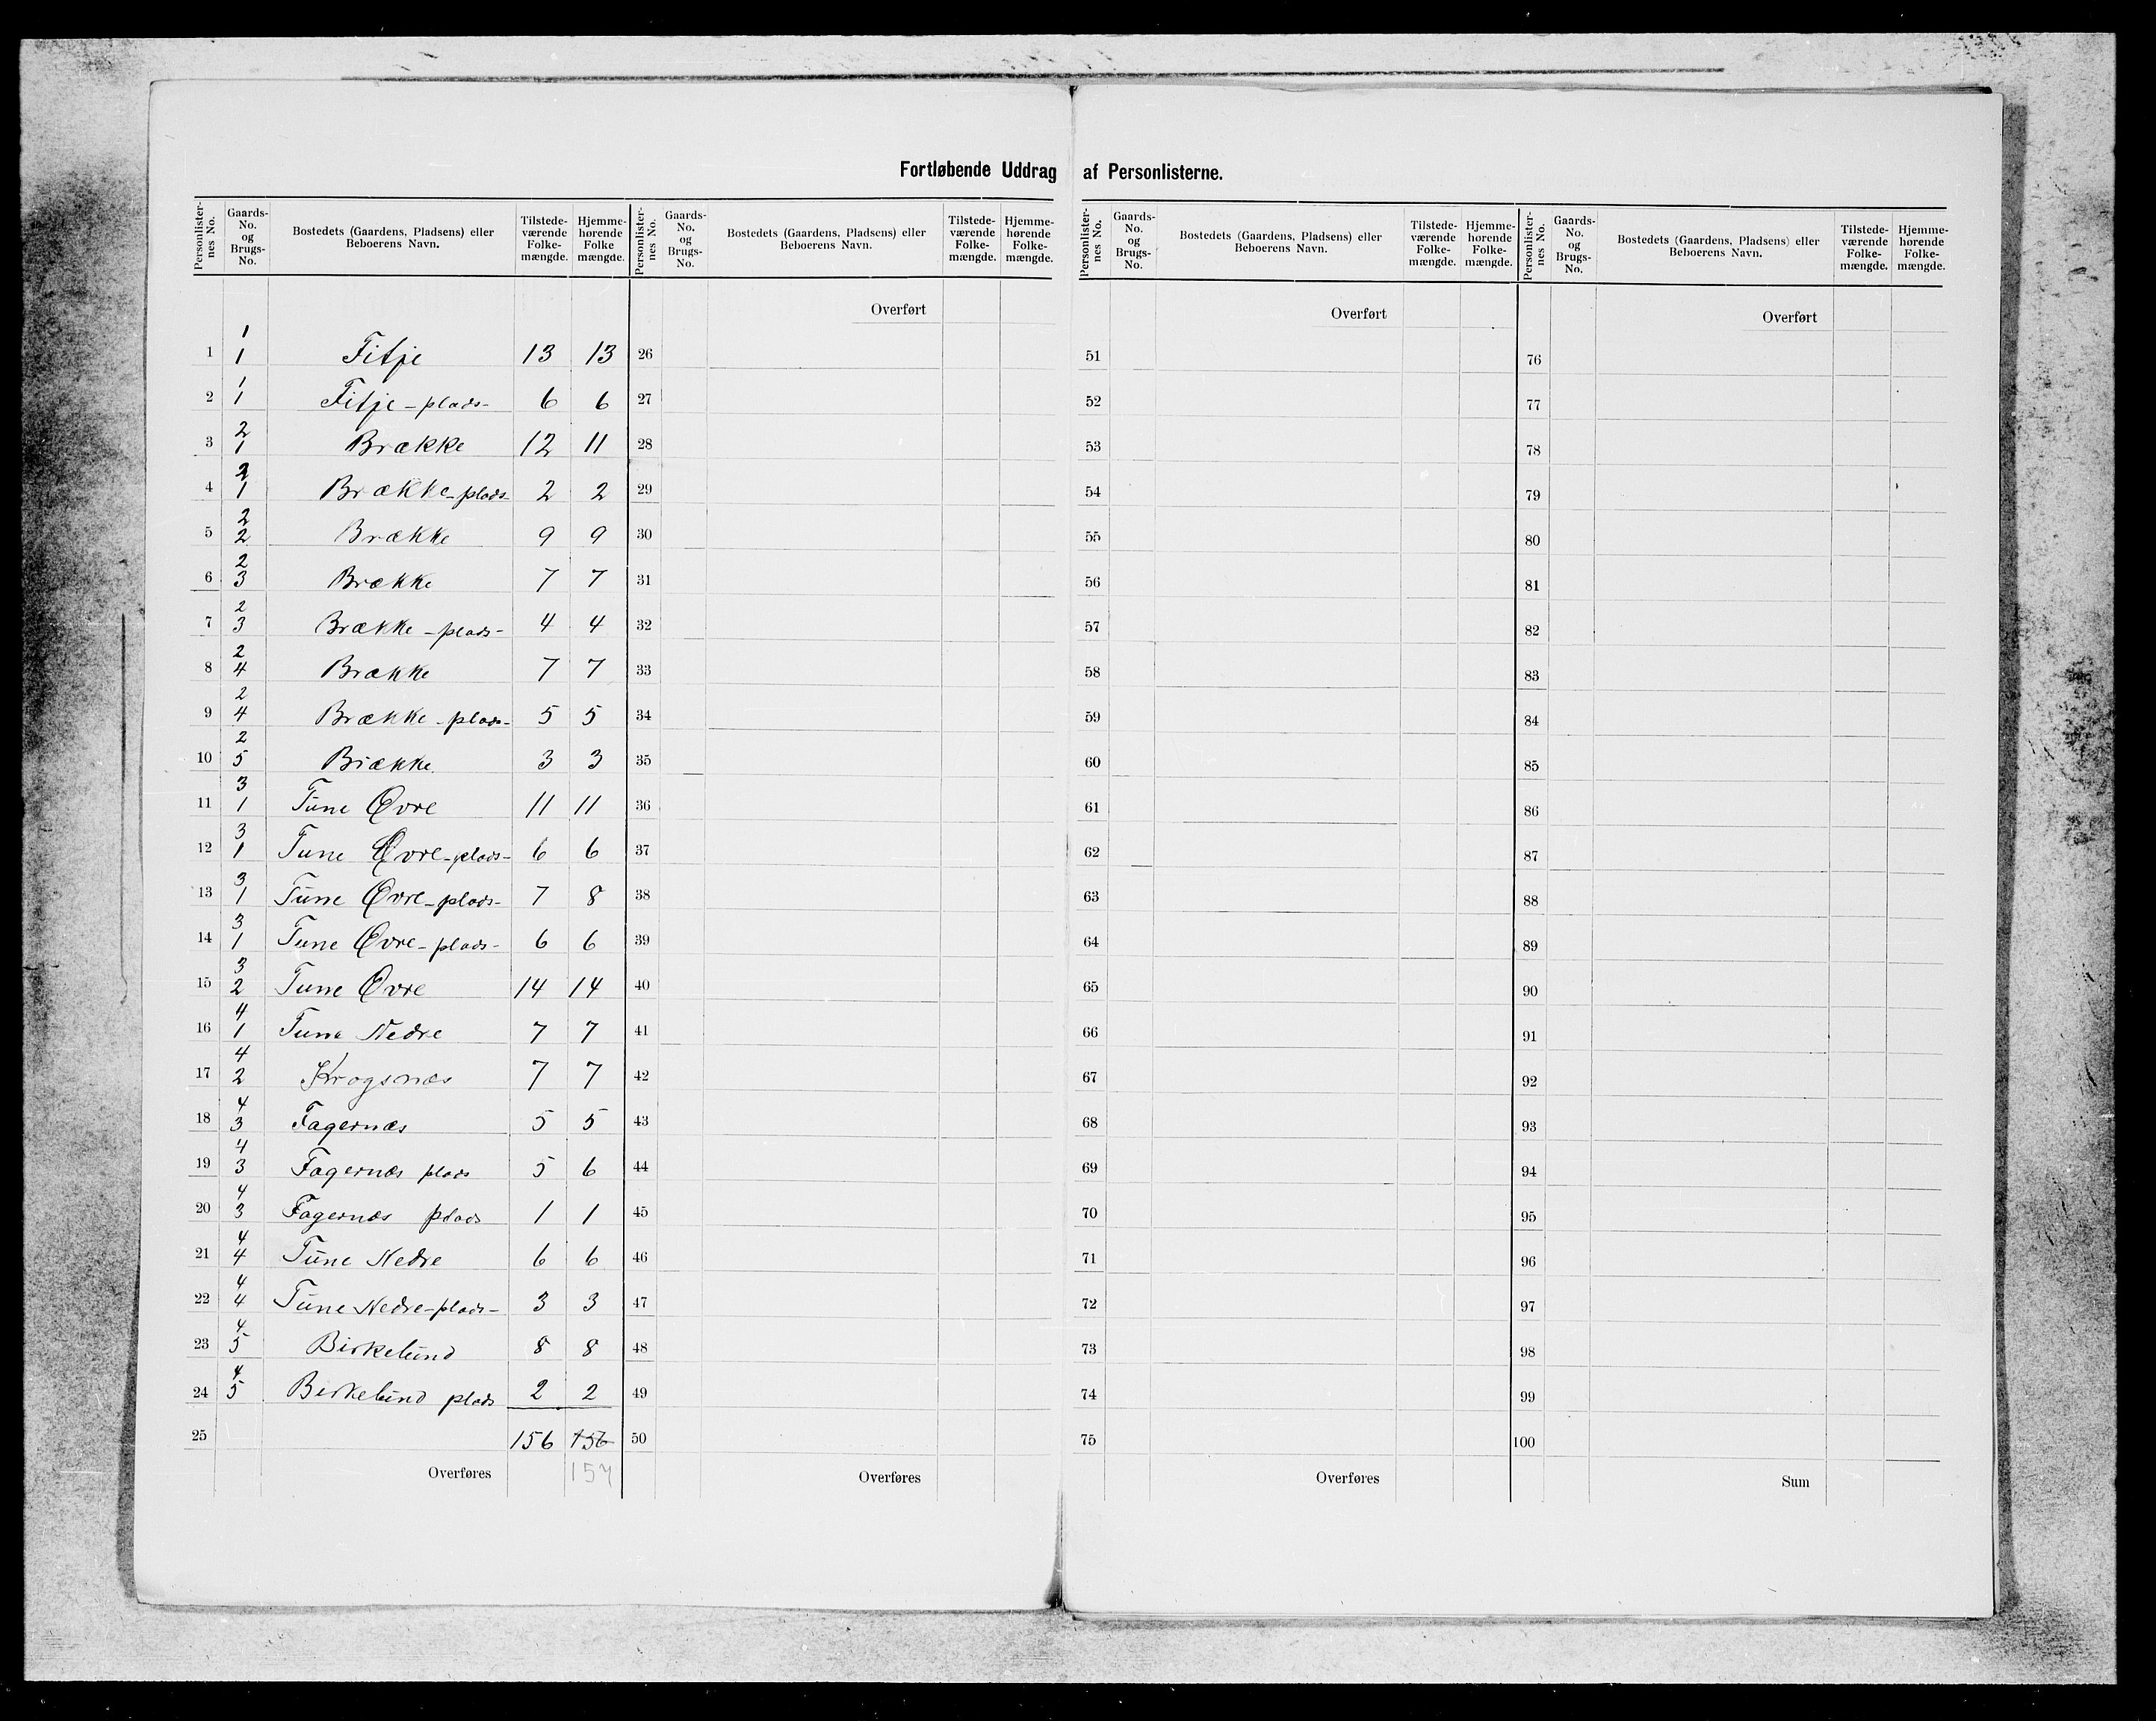 Fortløbende Uddrag af Personlisterne.
Personlister-nes No. Gaards-No. og Brugs-No. Bostedets (Gaardens, Pladsens) eller Beboerens Navn. Tilstede-værende Folke-mængde. Hjemme-hørende Folke mængde. Personlister-nes No. Gaards-No. og Brugs-No. Bostedets (Gaardens, Pladsens) eller Beboerens Navn. Tilstede-værende Folke-mængde. Hjemme-hørende Folke-mængde. Personlister-nes No. Gaards-No. og Brugs-No. Bostedets (Gaardens, Pladsens) eller Beboerens Navn. Tilstede-værende Folke-mængde. Hjemme-hørende Folke-mængde. Personlister-nes No. Gaards-No. og Brugs-No. Bostedets (Gaardens, Pladsens) eller Beboerens Navn. Tilstede-værende Folke-mængde. Hjemme-hørende Folke-mængde.
Overført Overført Overført
1 1 1 Fitje 13 13 26 51 76
2 1 1 Fitje-plads- 6 6 27 52 77
3 2 1 Brække 12 11 28 53 78
4 2 1 Brække-plads- 2 2 29 54 79
5 2 2 Brække 9 9 30 55 80
6 2 3 Brække 7 7 31 56 81
7 2 3 Brække-plads- 4 4 32 57 82
8 2 4 Brække 7 7 33 58 83
9 2 4 Brække-plads- 5 5 34 59 84
10 2 5 Brække 3 3 35 60 85
11 3 1 Tune Øvre 11 11 36 61 86
12 3 1 Tune Øvre-plads- 6 6 37 62 87
13 3 1 Tune Øvre-plads- 7 8 38 63 88
14 3 1 Tune Øvre-plads- 6 6 39 64 89
15 3 2 Tune Øvre 14 14 40 65 90
16 4 1 Tune Nedre 7 7 41 66 91
17 4 2 Krogsnæs 7 7 42 67 92
18 4 3 Fagernæs 5 5 43 68 93
19 4 3 Fagernæs plads 5 6 44 69 94
20 4 3 Fagernæs plads 1 1 45 70 95
21 4 4 Tune Nedre 6 6 46 71 96
22 4 4 Tune Nedre-plads- 3 3 47 72 97
23 4 5 Birkelund 8 8 48 73 98
24 4 5 Birkelund plads 2 2 49 74 99
25 156 156 50 75 100
Overføres 157 Overføres Overføres Sum